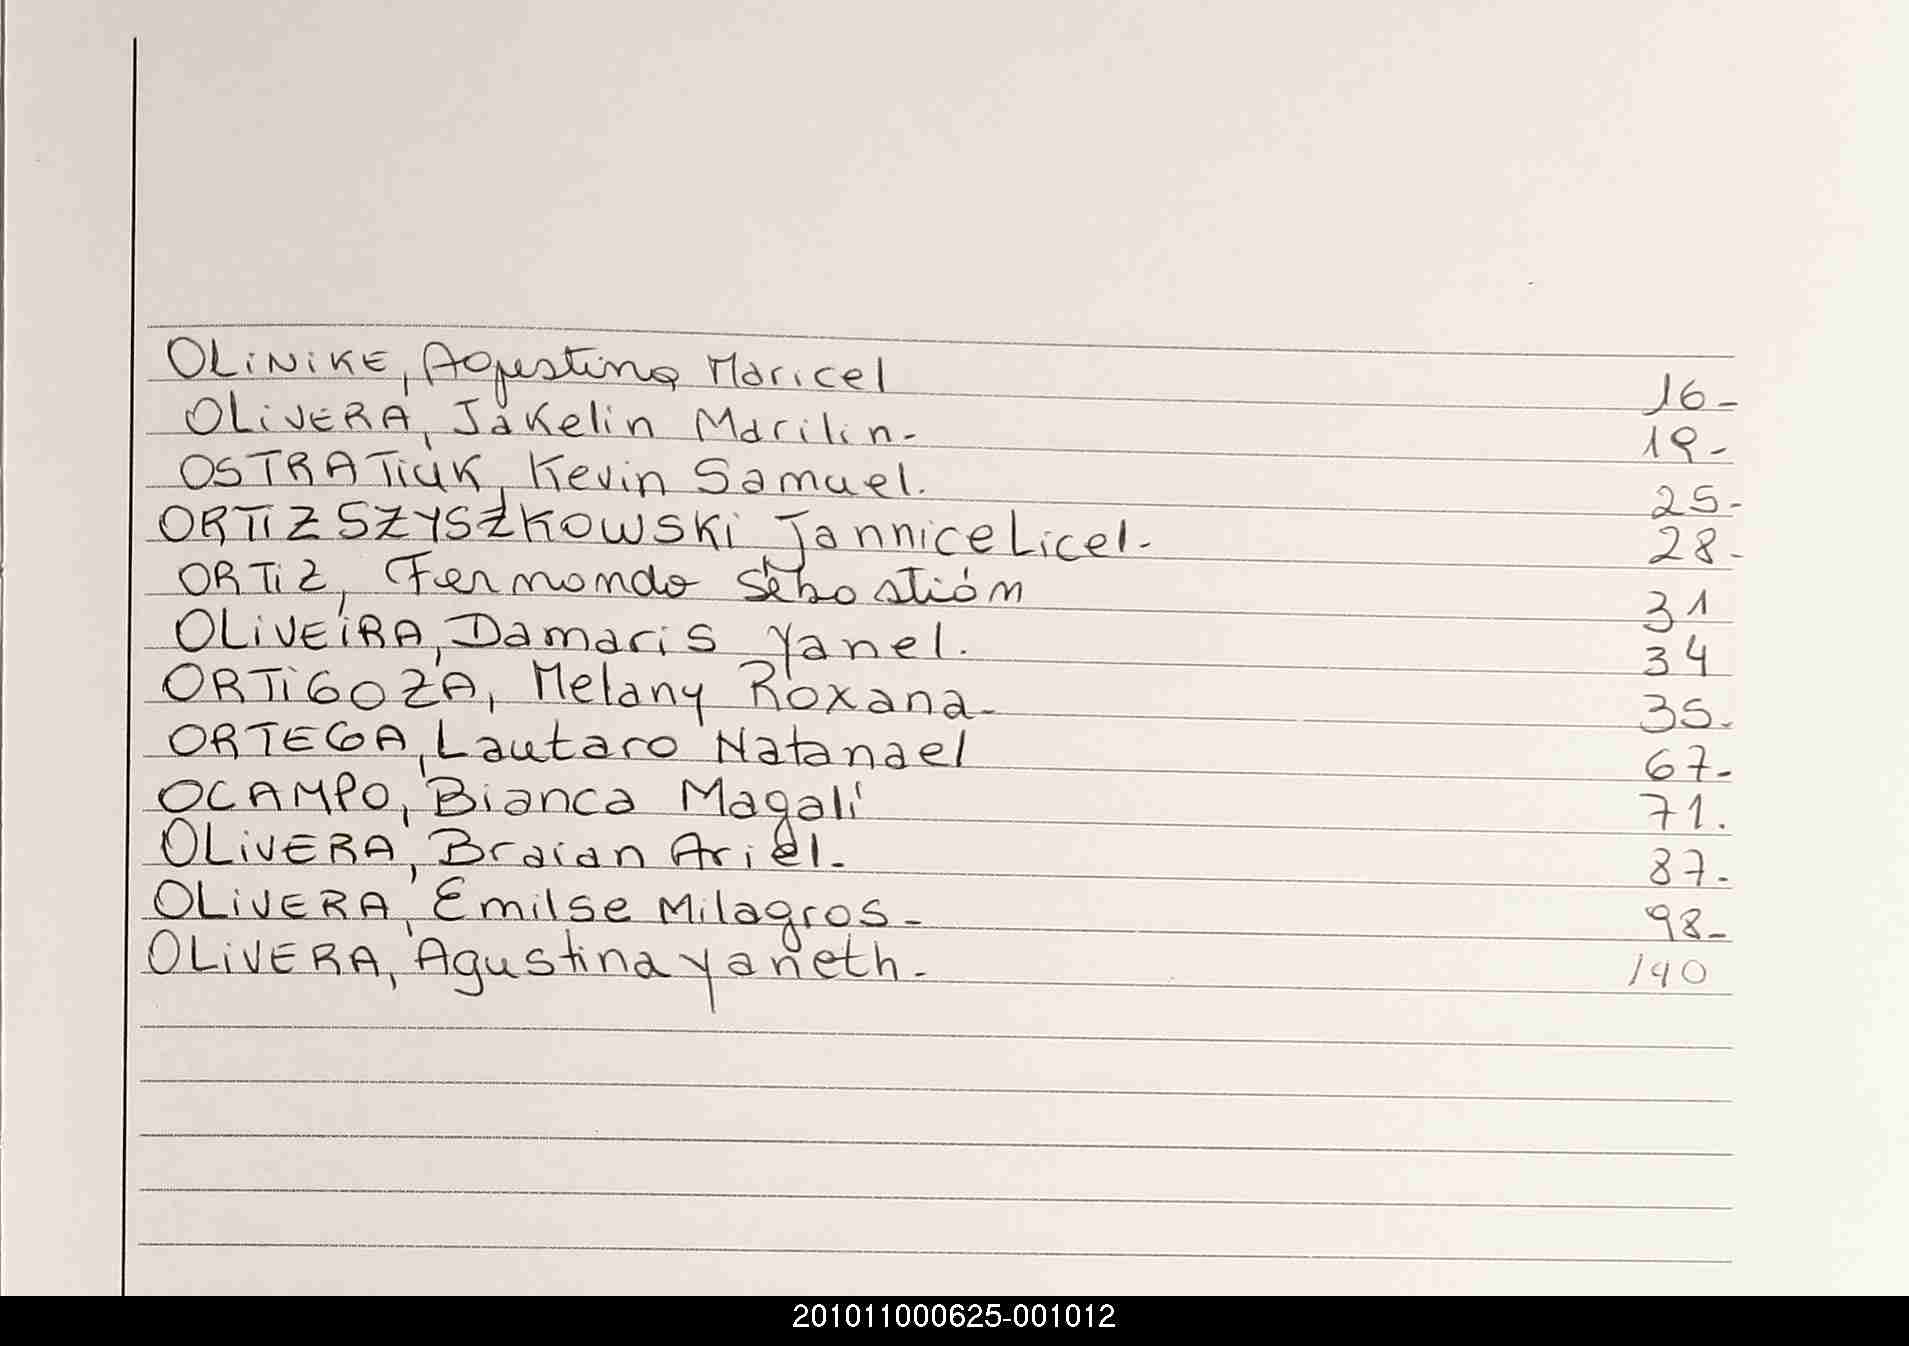 OLINIKE, Agustina Maricel 16-
OLIVERA, Jakelin Marilin- 19-
OSTRATIUK, Kevin Samuel. 25-
ORTIZ SZYSZKOWSKI Jannice Licel- 28-
ORTIZ, Fernando Sebastián 31
OLIVEIRA, Damaris Yanel. 34
ORTIGOZA, Melany Roxana- 35-
ORTEGA, Lautaro Natanael 67-
OCAMPO, Bianca Magalí 71.
OLIVERA, Braian Ariel- 87-
OLIVERA, Emilse Milagros- 98-
OLIVERA, Agustina Yaneth- 140
201011000625-001012